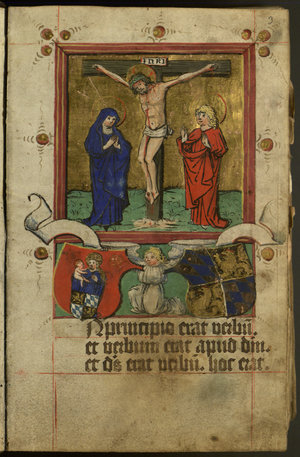 INRI
In principio erat verbū.
et verbum erat apud dm̄.
et ds̄ erat verbū. hoc erat.